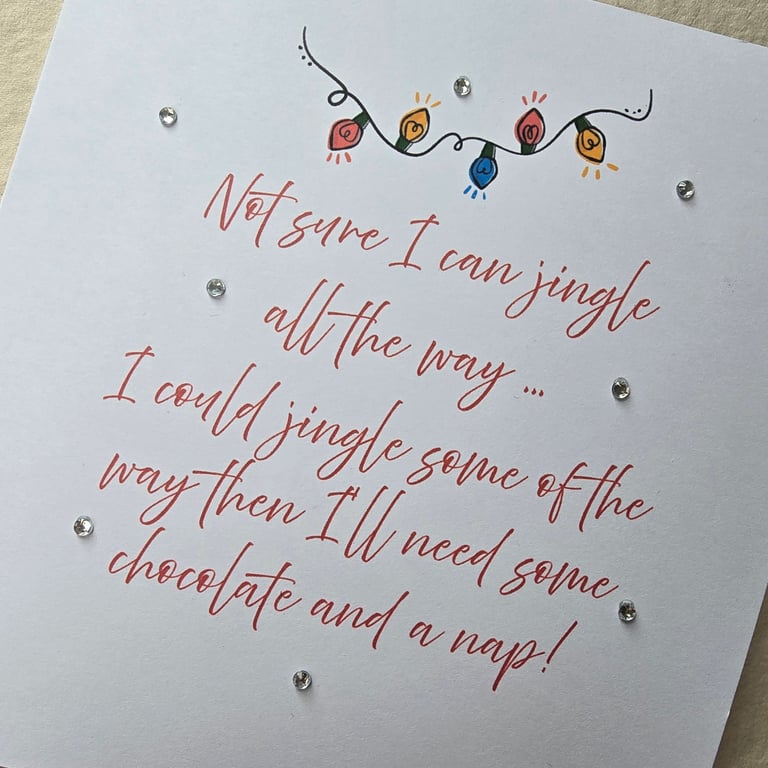 Not sure I can jingle
all the way...
I could jingle some of the
way then I'll need some
chocolate and a nap!